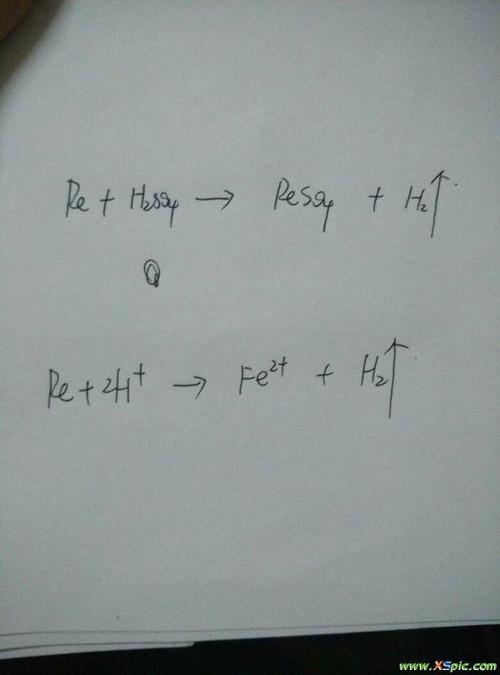 Fe + H₂SO₄ → FeSO₄ + H₂↑
Fe + 2H⁺ → Fe²⁺ + H₂↑
www.XSpic.com